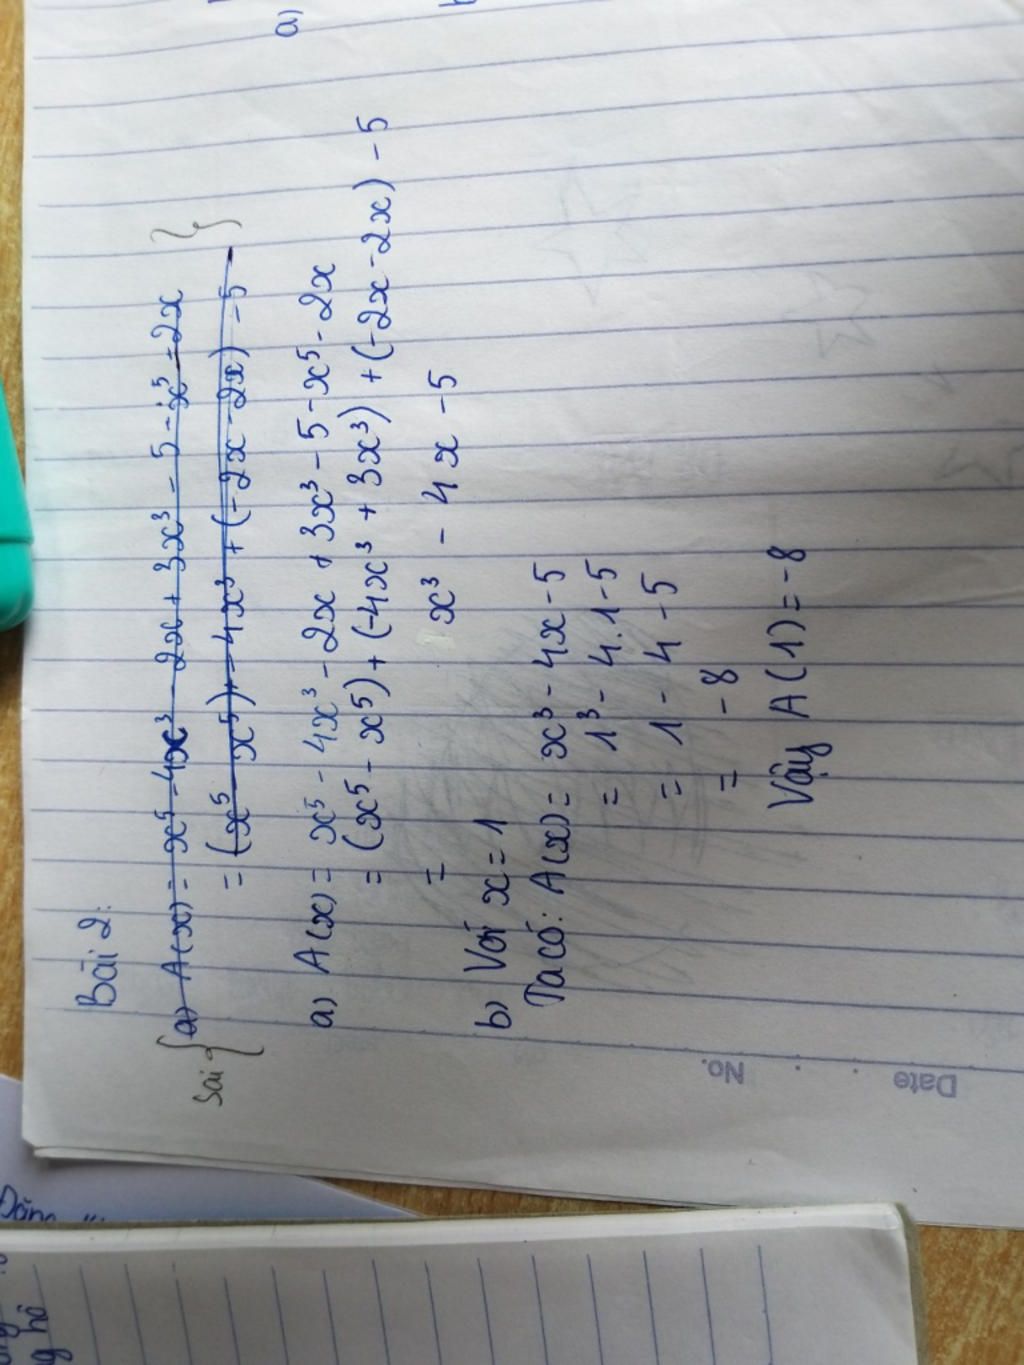 Bài 2:
a) A(x) = x⁵ - 4x³ - 2x + 3x³ - 5 - x⁵ - 2x
= (x⁵ - x⁵) + - 4x³ + (-2x - 2x) - 5
Sai
a) A(x) = x⁵ - 4x³ - 2x + 3x³ - 5 - x⁵ - 2x
= (x⁵ - x⁵) + (-4x³ + 3x³) + (-2x - 2x) - 5
= x³ - 4x - 5
b) Với x = 1
Ta có: A(x) = x³ - 4x - 5
= 1³ - 4.1 - 5
= 1 - 4 - 5
= - 8
Vậy A(1) = -8
a)
Date
No.